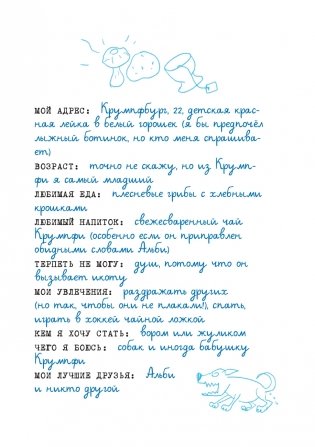 МОЙ АДРЕС: Крумпфбург, 22, детская крас-
ная лейка в белый горошек (я бы предпочёл
лыжный ботинок, но кто меня спрашива-
ет)
ВОЗРАСТ: точно не скажу, но из Крумп-
фи я самый младший
ЛЮБИМАЯ ЕДА: плесневые грибы с хлебными
крошками
ЛЮБИМЫЙ НАПИТОК: свежесваренный чай
Крумпфи (особенно если он приправлен
обидными словами Альби)
ТЕРПЕТЬ НЕ МОГУ: душ, потому что он
вызывает икоту
МОИ УВЛЕЧЕНИЯ: раздражать других
(но так, чтобы они не плакали!), спать,
играть в хоккей чайной ложкой
КЕМ Я ХОЧУ СТАТЬ: вором или жуликом
ЧЕГО Я БОЮСЬ: собак и иногда бабушку
Крумпфи
МОИ ЛУЧШИЕ ДРУЗЬЯ: Альби
и никто другой